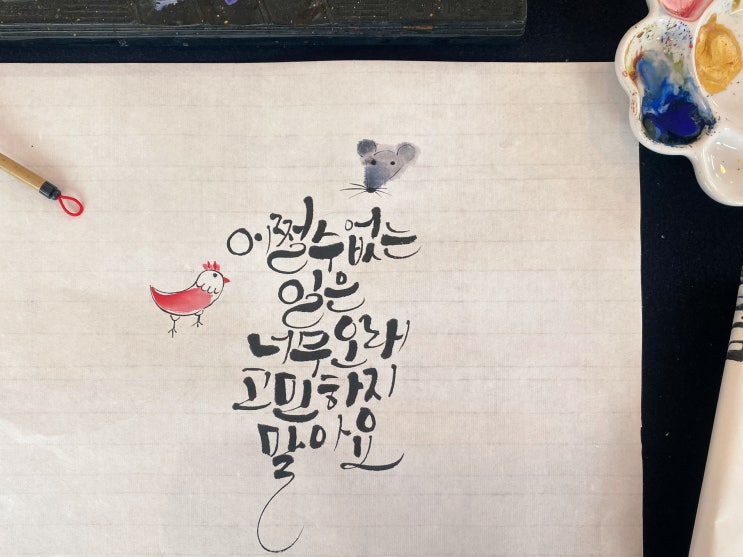 어쩔수없는
일은
너무오래
고민하지
말아요